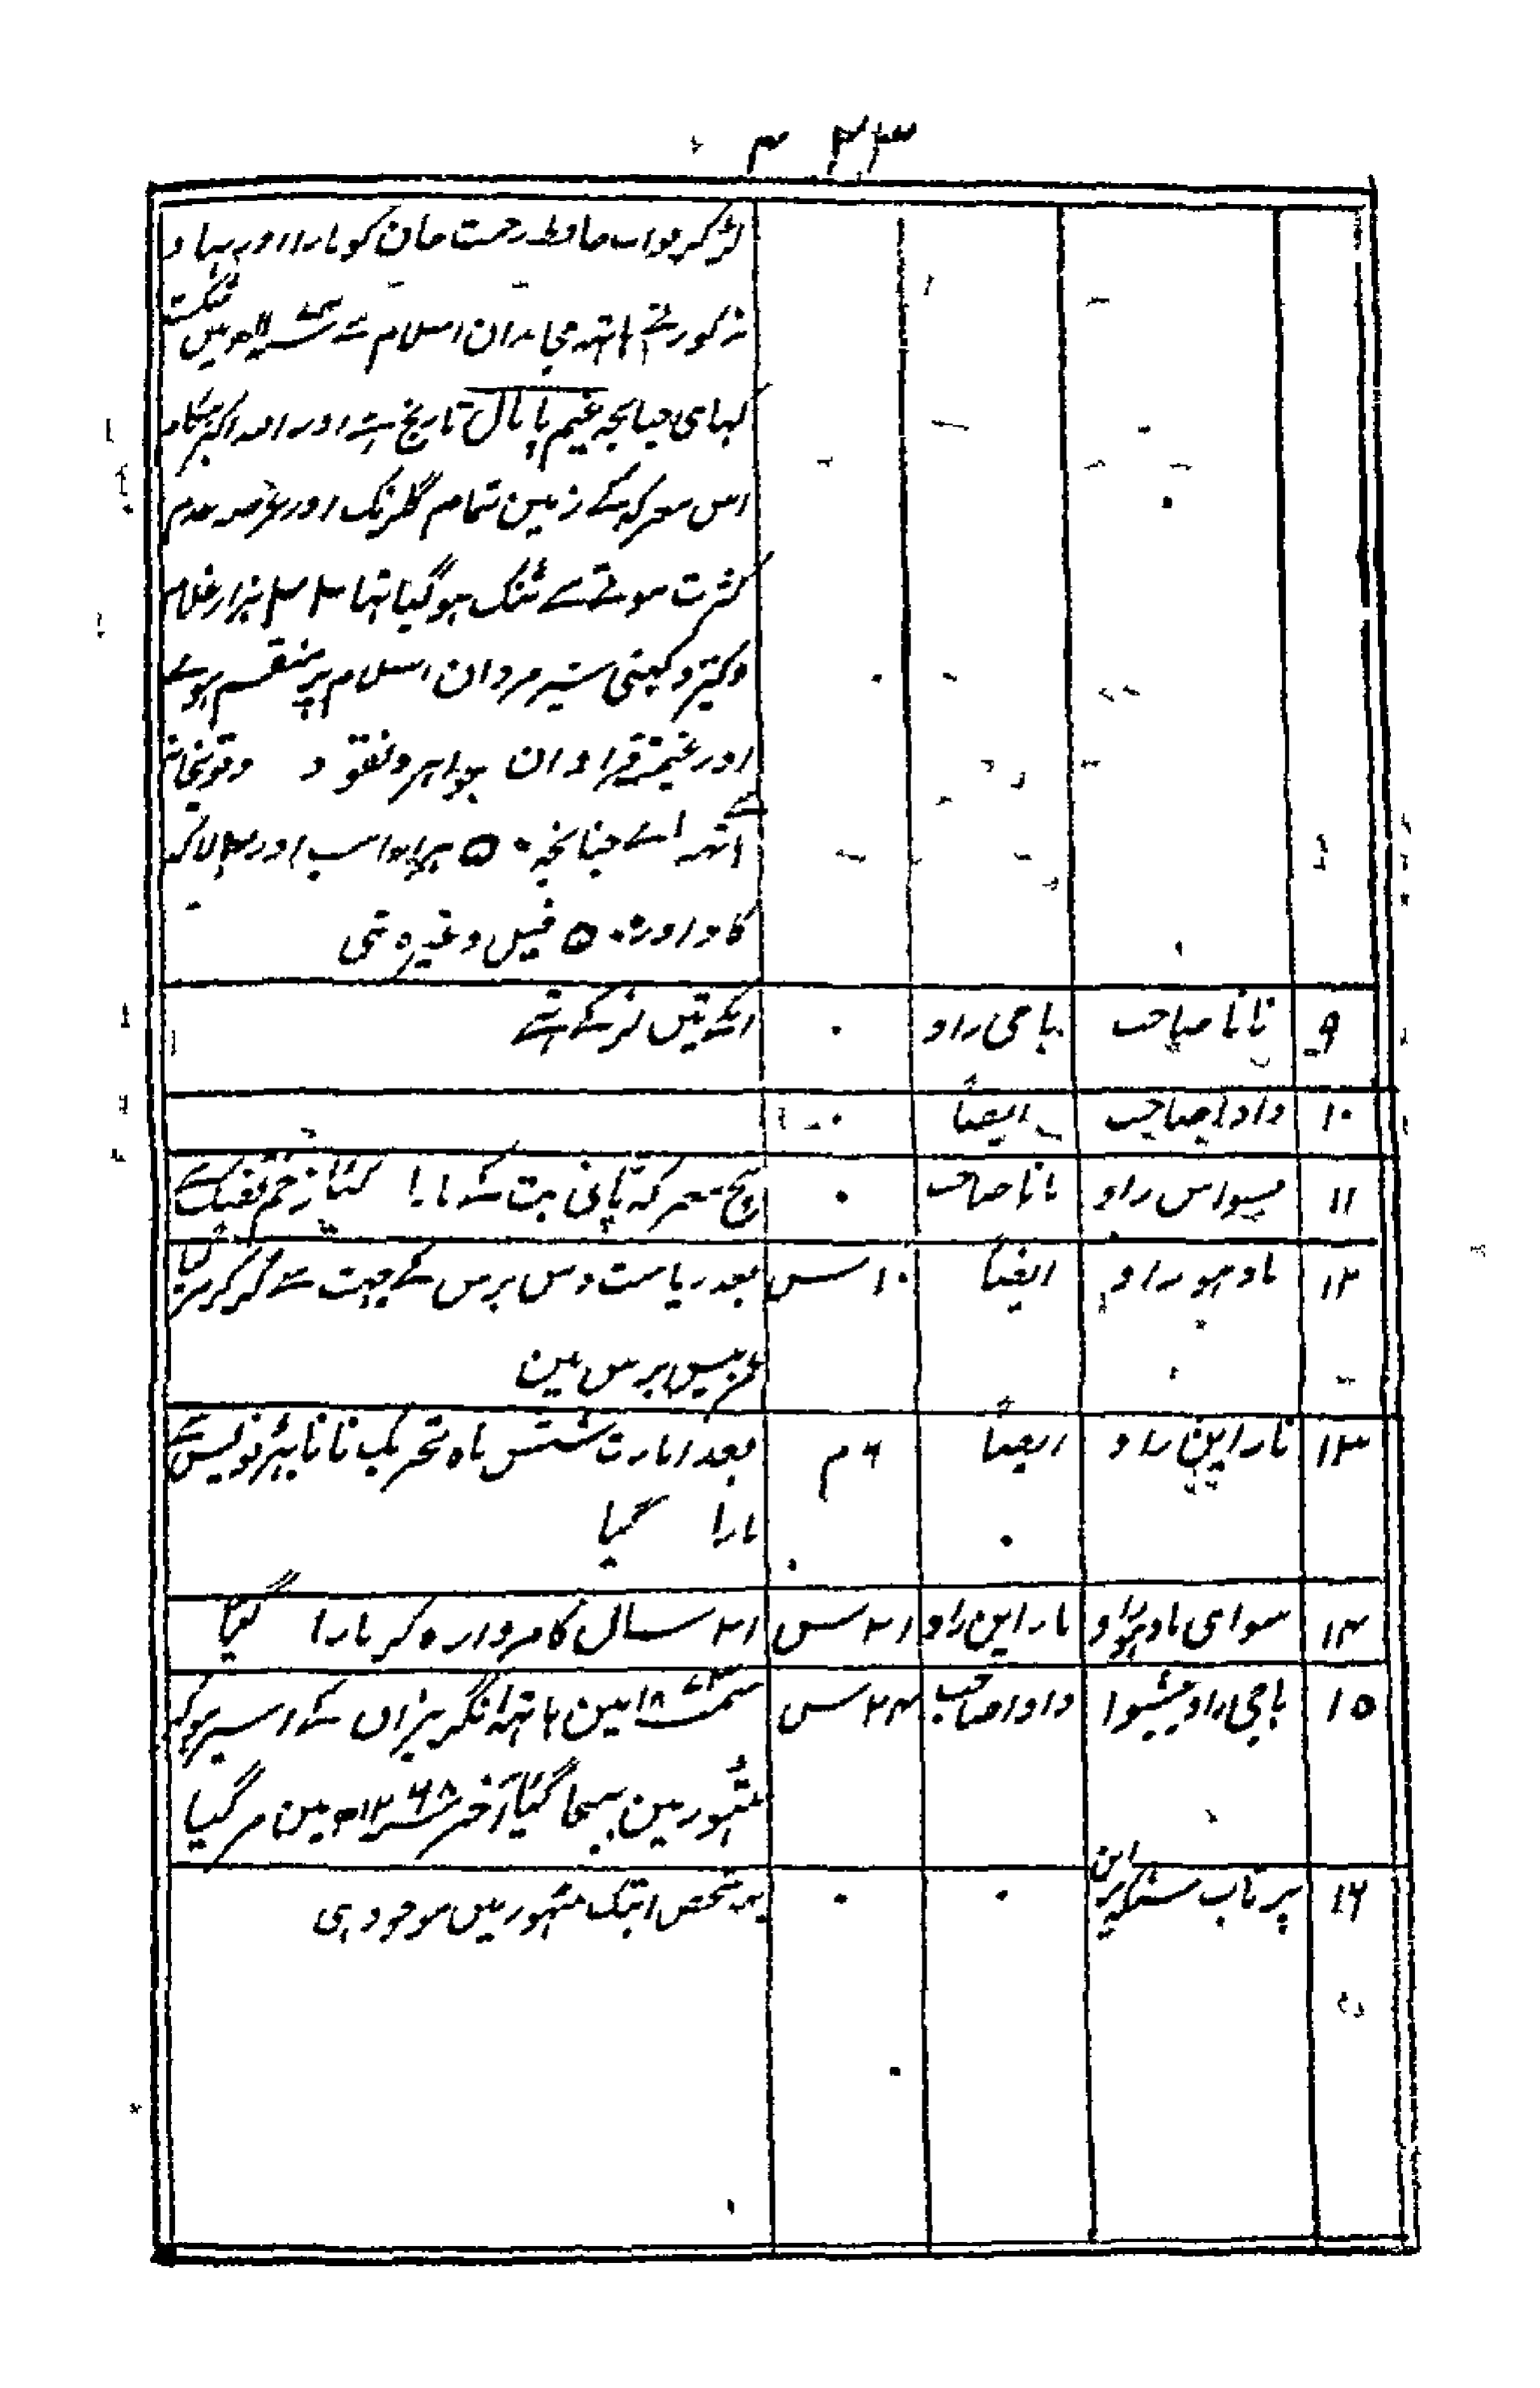 لڑکر نواب حافظ رحمت خان کو مارا اور بہاو
مذکور نے ہاتہہ مجاہدان اسلام سے میں شکست
کہای چنانچہ غنیم پامال تاریخ ہے اور
اس معرکہ کے زمین تمام گلرنگ اور عرصہ عدم
کثرت موتے سے تنگ ہوگیا تہا ہزار غلام
وکنیز دکہنی شیر مردان اسلام پر منقسم ہوے
اور غنیمت فراوان جواہر و نقود و توپخانہ
کے آئے چنانچہ ۵۰ ہزار اسپ اور ۲ لاکہہ
گاو اور ۵۰۰ فیل وغیرہ تہی
۹ نانا صاحب باجی راو ۰ تہے
۱۰ دادا صاحب ایضاً ۰
۱۱ بسواس راو نانا صاحب ۰ بیچ معرکہ پانی پت کے مارا گیا زخم تفنگ سے
۱۲ مادہو راو ایضاً ۱۰ س بعد ریاست دس برس کے چہت سے گر کر مر گیا
عمر بیس برس مین
۱۳ ناراین راو ایضاً ۶ م بعد امارت شش ماہ تحریک نانا پہڑنویس سے
مارا گیا
۱۴ سوای مادہو راو ناراین راو ۲۱ س ۲۱ سال کا ہو کر مارا گیا
۱۵ باجی راو پیشوا دادا صاحب ۲۴ س مین ہاتہہ انگریزاں کے اسیر ہوکر
بٹہور مین بہیجا گیا آخر ۱۲۶۸ مین مر گیا
۱۶ پرتاب سنگہہ ۰ ۰ یہ شخص ابتک بٹہور میں موجود ہی